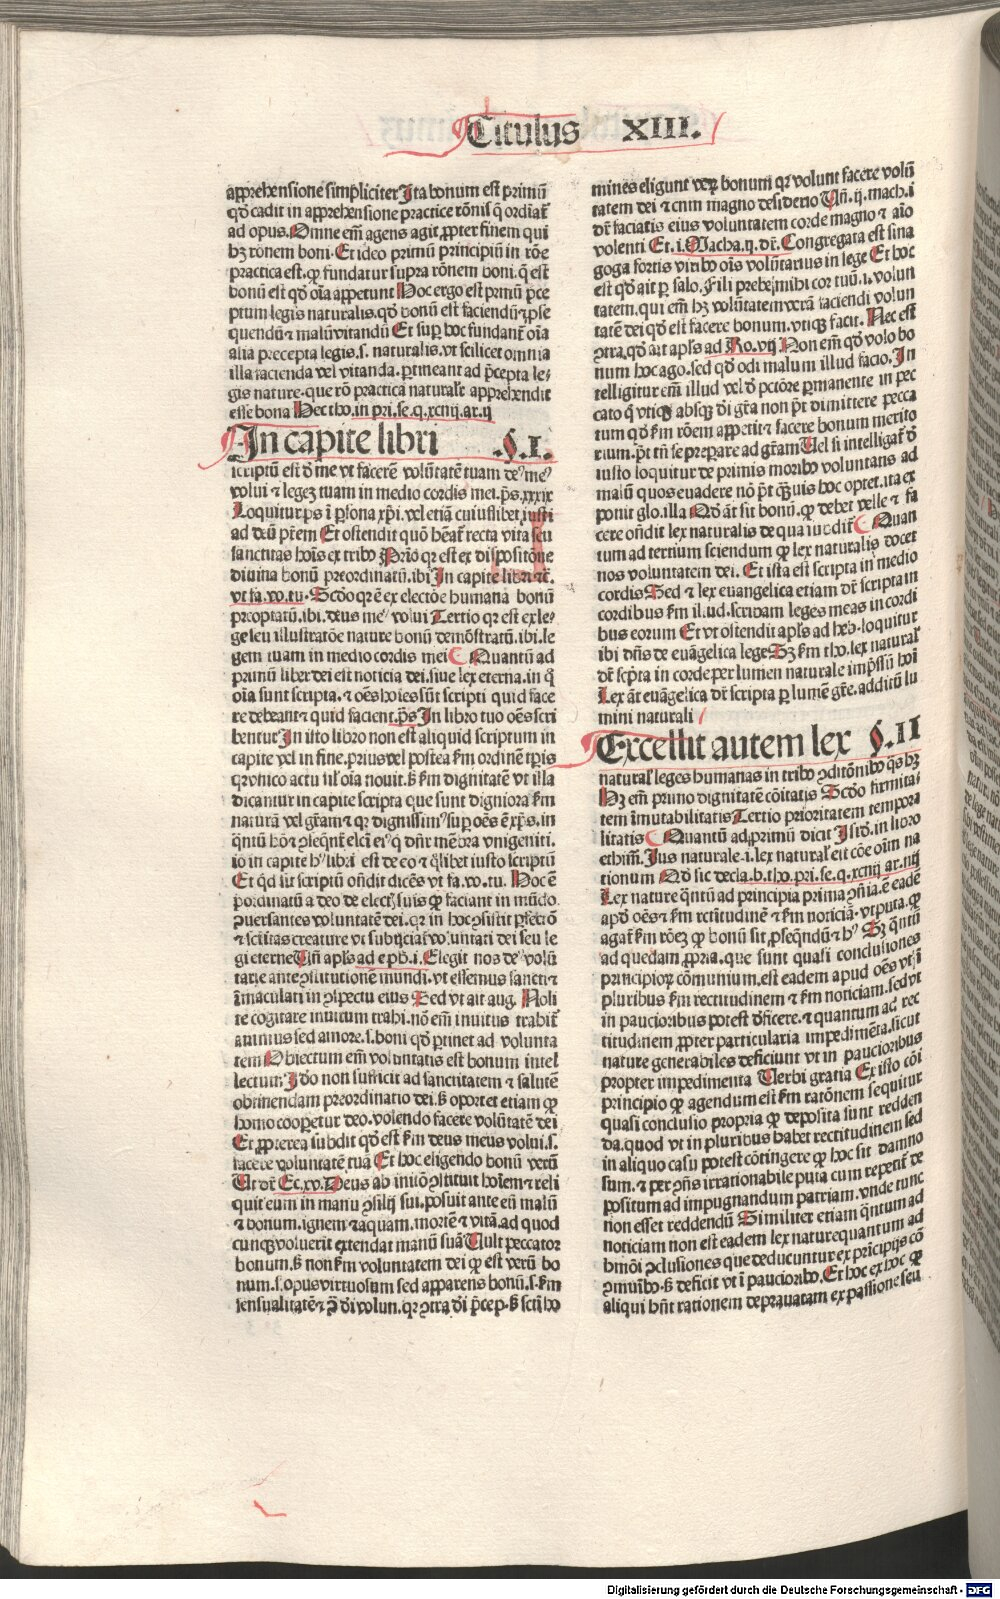 Titulus XIII.
apprehensione simpliciter Ita bonum est primũ
qđ cadit in apprehensione practice rõnis q̃ ordiat᷑
ad opus. Omne em̃ agens agit ꝓpter finem qui
hꝫ rõnem boni. Et ideo primũ principiũ in rõe
practica est. ꝙ fundatur supra rõnem boni. q̃ est
bonũ est qđ oĩa appetunt Hoc ergo est primũ p̃ce
ptum legis naturalis. qđ bonũ est faciendũ ⁊ ꝓse
quendũ ⁊ malũ vitandũ Et suꝑ hoc fundant᷑ oĩa
alia precepta legis .s. naturalis. vt scilicet omnia
illa facienda vel vitanda. ꝑtineant ad p̃cepta le⸗
gis nature. que rõ practica naturalr̃ apprehendit
esse bona Hec tho. in pri. se. q. xciiij. ar. ij
In capite libri .§. I.
scriptũ est đ me vt facerẽ volũtatẽ tuam deꝰ meꝰ
volui ⁊ legeꝫ tuam in medio cordis mei. p̃s. xxxix
Loquitur p̃s ĩ ꝑsona xp̃i. vel etiã cuiuslibet iusti
ad deũ pr̃em Et ostendit quõ hẽat᷑ recta vita seu
sanctitas hoĩs ex tribꝰ Prĩo qꝛ est ex dispositõne
diuina bonũ preordinatũ. ibi In capite libri ⁊c̃.
vt fa. vo. tu. Scđo qꝛ ẽ ex electõe humana bonũ
preoptatũ. ibi. deus meꝰ volui Tertio qꝛ est ex le⸗
ge seu illustratõe nature bonũ demõstratũ. ibi. le
gem tuam in medio cordis mei Quantũ ad
primũ liber dei est noticia dei. siue lex eterna. in q̃
oĩa sunt scripta. ⁊ oẽs hoĩes sũt scripti quid face
re debeant ⁊ quid facient. p̃s In libro tuo oẽs scri
bentur In isto libro non est aliquid scriptum in
capite vel in fine. prius vel postea km̃ ordinẽ tꝑis
q̃ꝛ vnico actu sil̃ oĩa nouit. ß km̃ dignitatẽ vt illa
dicantur in capite scripta que sunt digniora km̃
naturã vel gr̃am ⁊ qꝛ dignissimꝰ suꝑ oẽs ẽ xp̃s. in
q̃ntũ hõ ⁊ ꝯseq̃nt᷑ elci eiꝰ q dñr mẽbra vnigeniti.
io in capite hꝰ libri est de eo ⁊ q̃libet iusto scriptũ
Et q̃d sit scriptũ oñdit dicẽs vt fa. vo. tu. Hoc ẽ
p̃ordinatũ a deo de elect᷑ suis ꝙ faciant in mũdo.
ꝯuersantes voluntatẽ dei. qꝛ in hoc ꝯsistit ꝑfectio
⁊ sctĩtas creature vt subijciat᷑ voluntati dei seu le
gi eterne Uñ apl̃s ad eph. i. Elegit nos de volũ
tate ante ꝯstitutionẽ mundi. vt essemus sancti ⁊
ĩmaculati in ꝯspectu eius Sed vt ait aug. Noli
te cogitare inuitum trahi. nõ em̃ inuitus trahit᷑
animus sed amore .s. boni qđ ꝑtinet ad volunta
tem Obiectum em̃ voluntatis est bonum intel
lectum Iđo non sufficit ad sanctitatem ⁊ salutẽ
obtinendam preordinatio dei. ß oportet etiam ꝙ
homo cooꝑetur deo. volendo facere volũtatẽ dei
Et ꝓpterea subdit qđ est km̃ deus meus volui .s.
facere voluntatẽ tuã Et hoc eligendo bonũ verũ
Ut dr̃ Ec. xv. Deus ab initio ꝯstituit hoĩem ⁊ reli
quit eum in manu ꝯsilij sui. posuit ante eũ malũ
⁊ bonum. ignem ⁊ aquam. mortẽ ⁊ vitã. ad quod
cunqꝫ voluerit extendat manũ suã Uult peccator
bonum. ß non km̃ voluntatem dei ꝙ est verũ bo
num .s. opus virtuosum sed apparens bonũ .s. km̃
sensualitatẽ ⁊ ꝯ đi volun. qꝛ ꝯtra đi p̃cep. ß sctĩ ho
mines eligunt veꝝ bonum qꝛ volunt facere volũ
tatem dei ⁊ cum magno desiderio Uñ. ij. mach. i
dr̃ faciatis eius voluntatem corde magno ⁊ aĩo
volenti Et .i. Macha. ij. dr̃. Congregata est sina
goga fortis viribꝰ oĩs volũtarius in lege Et hoc
est qđ ait ꝑ salo. Fili prebe mihi cor tuũ .i. volun
tatem. qui em̃ hꝫ volũtatem verã faciendi volun
tatẽ dei qđ est facere bonum. vtiqꝫ facit. Nec est
ꝯtra. qđ ait apl̃s ad Ro. vij Non em̃ qđ volo bo
num hoc ago. sed qđ odi malum illud facio. In
telligitur em̃ illud vel đ pctõre ꝑmanente in pec
cato q̃ vtiqꝫ absqꝫ đi gr̃a non p̃t dimittere pecca
tum q̃ km̃ rõem appetit ⁊ facere bonum merito
rium. p̃t tñ se preparare ad gr̃am Uel si intelligat᷑ đ
iusto loquitur de primis moribꝰ voluntatis ad
malũ quos euadere nõ p̃t q̃uis hoc optet. ita ex
ponit glo. illa Qđ aũt sit bonũ. ꝙ debet velle ⁊ fa
cere oñdit lex naturalis de qua iudicit᷑ Quan
tum ad tertium sciendum ꝙ lex naturalis docet
nos voluntatem dei. Et ista est scripta in medio
cordis Sed ⁊ lex euangelica etiam dr̃ scripta in
cordibus km̃ illud. scribam leges meas in cordi
bus eorum Et vt ostendit apl̃s ad heb. loquitur
ibi dñs de euãgelica lege Sꝫ km̃ tho. lex naturaľ
dr̃ scp̃ta in corde per lumen naturale imp̃ssũ hoĩ
Lex aũt euãgelica dr̃ scripta ꝑ lumẽ gr̃e. additũ lu
mini naturali
Excellit autem lex §. II
naturaľ leges humanas in tribꝰ ꝯditõnibꝰ q̃s hꝫ
Hꝫ em̃ primo dignitatẽ cõitatis Scđo firmita⸗
tem ĩmutabilitatis Tertio prioritatem tempora
litatis Quantũ ad primũ dicit Isiđ. in libro
ethim̃. Ius naturale .i. lex naturaľ est cõe oĩm na
tionum Qđ sic decla. b. tho. pri. se. q. xciiij ar. iiij
Lex nature q̃ntũ ad principia prima ꝯñia. ẽ eadẽ
apđ oẽs ⁊ km̃ rctitudinẽ ⁊ km̃ noticiã. vt puta. ꝙ
agat᷑ km̃ rõeꝫ ꝙ bonũ sit ꝓseq̃ndũ ⁊ hꝰ Sꝫ q̃ntũ
ad quedam ꝓpria. que sunt quasi conclusiones
principioꝝ cõmunium. est eadem apud oẽs vt ĩ
pluribus km̃ rectitudinem ⁊ km̃ noticiam. sed vt
in paucioribus potest đficere. ⁊ quantum ad rec
titudinem ꝓpter particularia impedimẽta. sicut
nature generabiles deficiunt vt in paucioribus
propter impedimenta Uerbi gratia Ex isto cõi
principio ꝙ agendum est km̃ ratõnem sequitur
quasi conclusio propria ꝙ deposita sunt redden
da. quod vt in pluribus habet rectitudinem sed
in aliquo casu potest cõtingere ꝙ hoc sit damno
sum. ⁊ per ꝯñs irrationabile puta cum repetit᷑ de
positum ad impugnandum patriam. vnde tunc
non esset reddendũ Similiter etiam q̃ntum ad
noticiam non est eadem lex nature quantum ad
hmõi ꝯclusiones que deducuntur ex prĩcipijs cõ
ꝯmunibꝰ. ß deficit vt ĩ paucioribꝰ. Et hoc ex hoc ꝙ
aliqui hñt rationem deprauatam ex passione seu
Digitalisierung gefördert durch die Deutsche Forschungsgemeinschaft - DFG